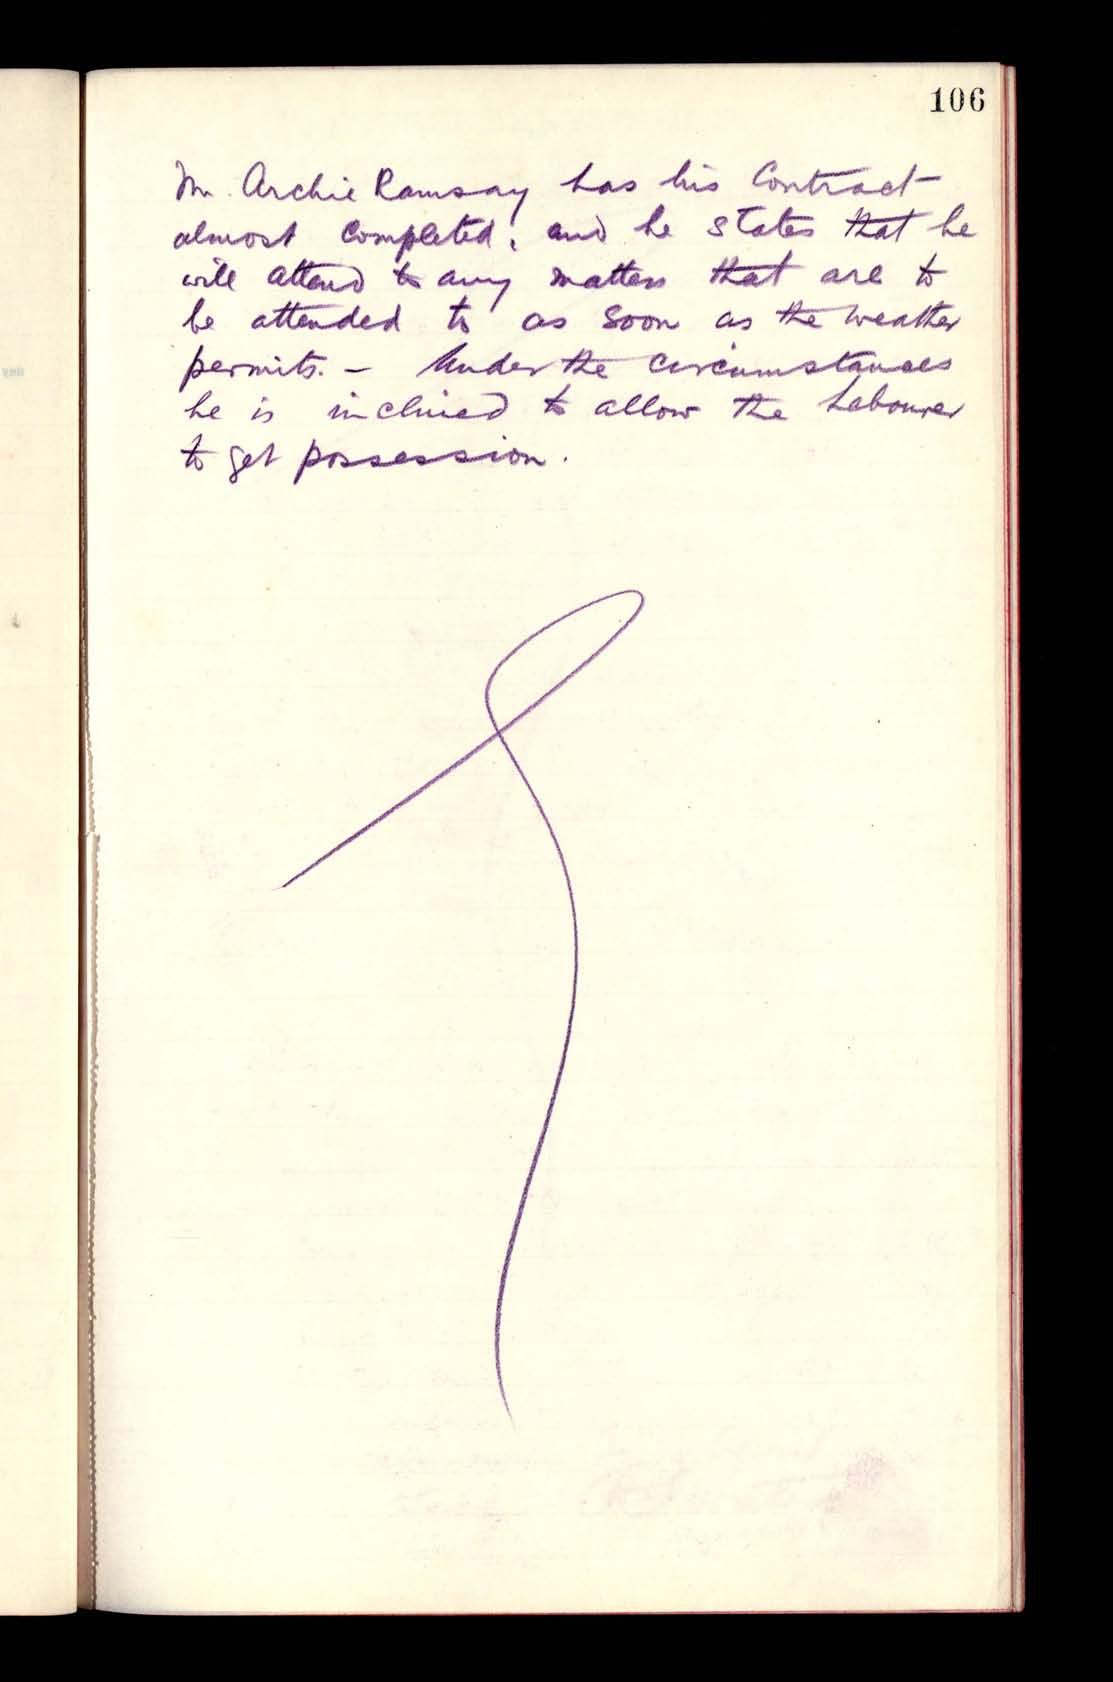 106
Mr. Archie Ramsay has his Contract
almost Completed, and he states that he
will attend to any matters that are to
be attended to as soon as the weather
permits. — Under the circumstances
he is inclined to allow the Labourer
to get possession.